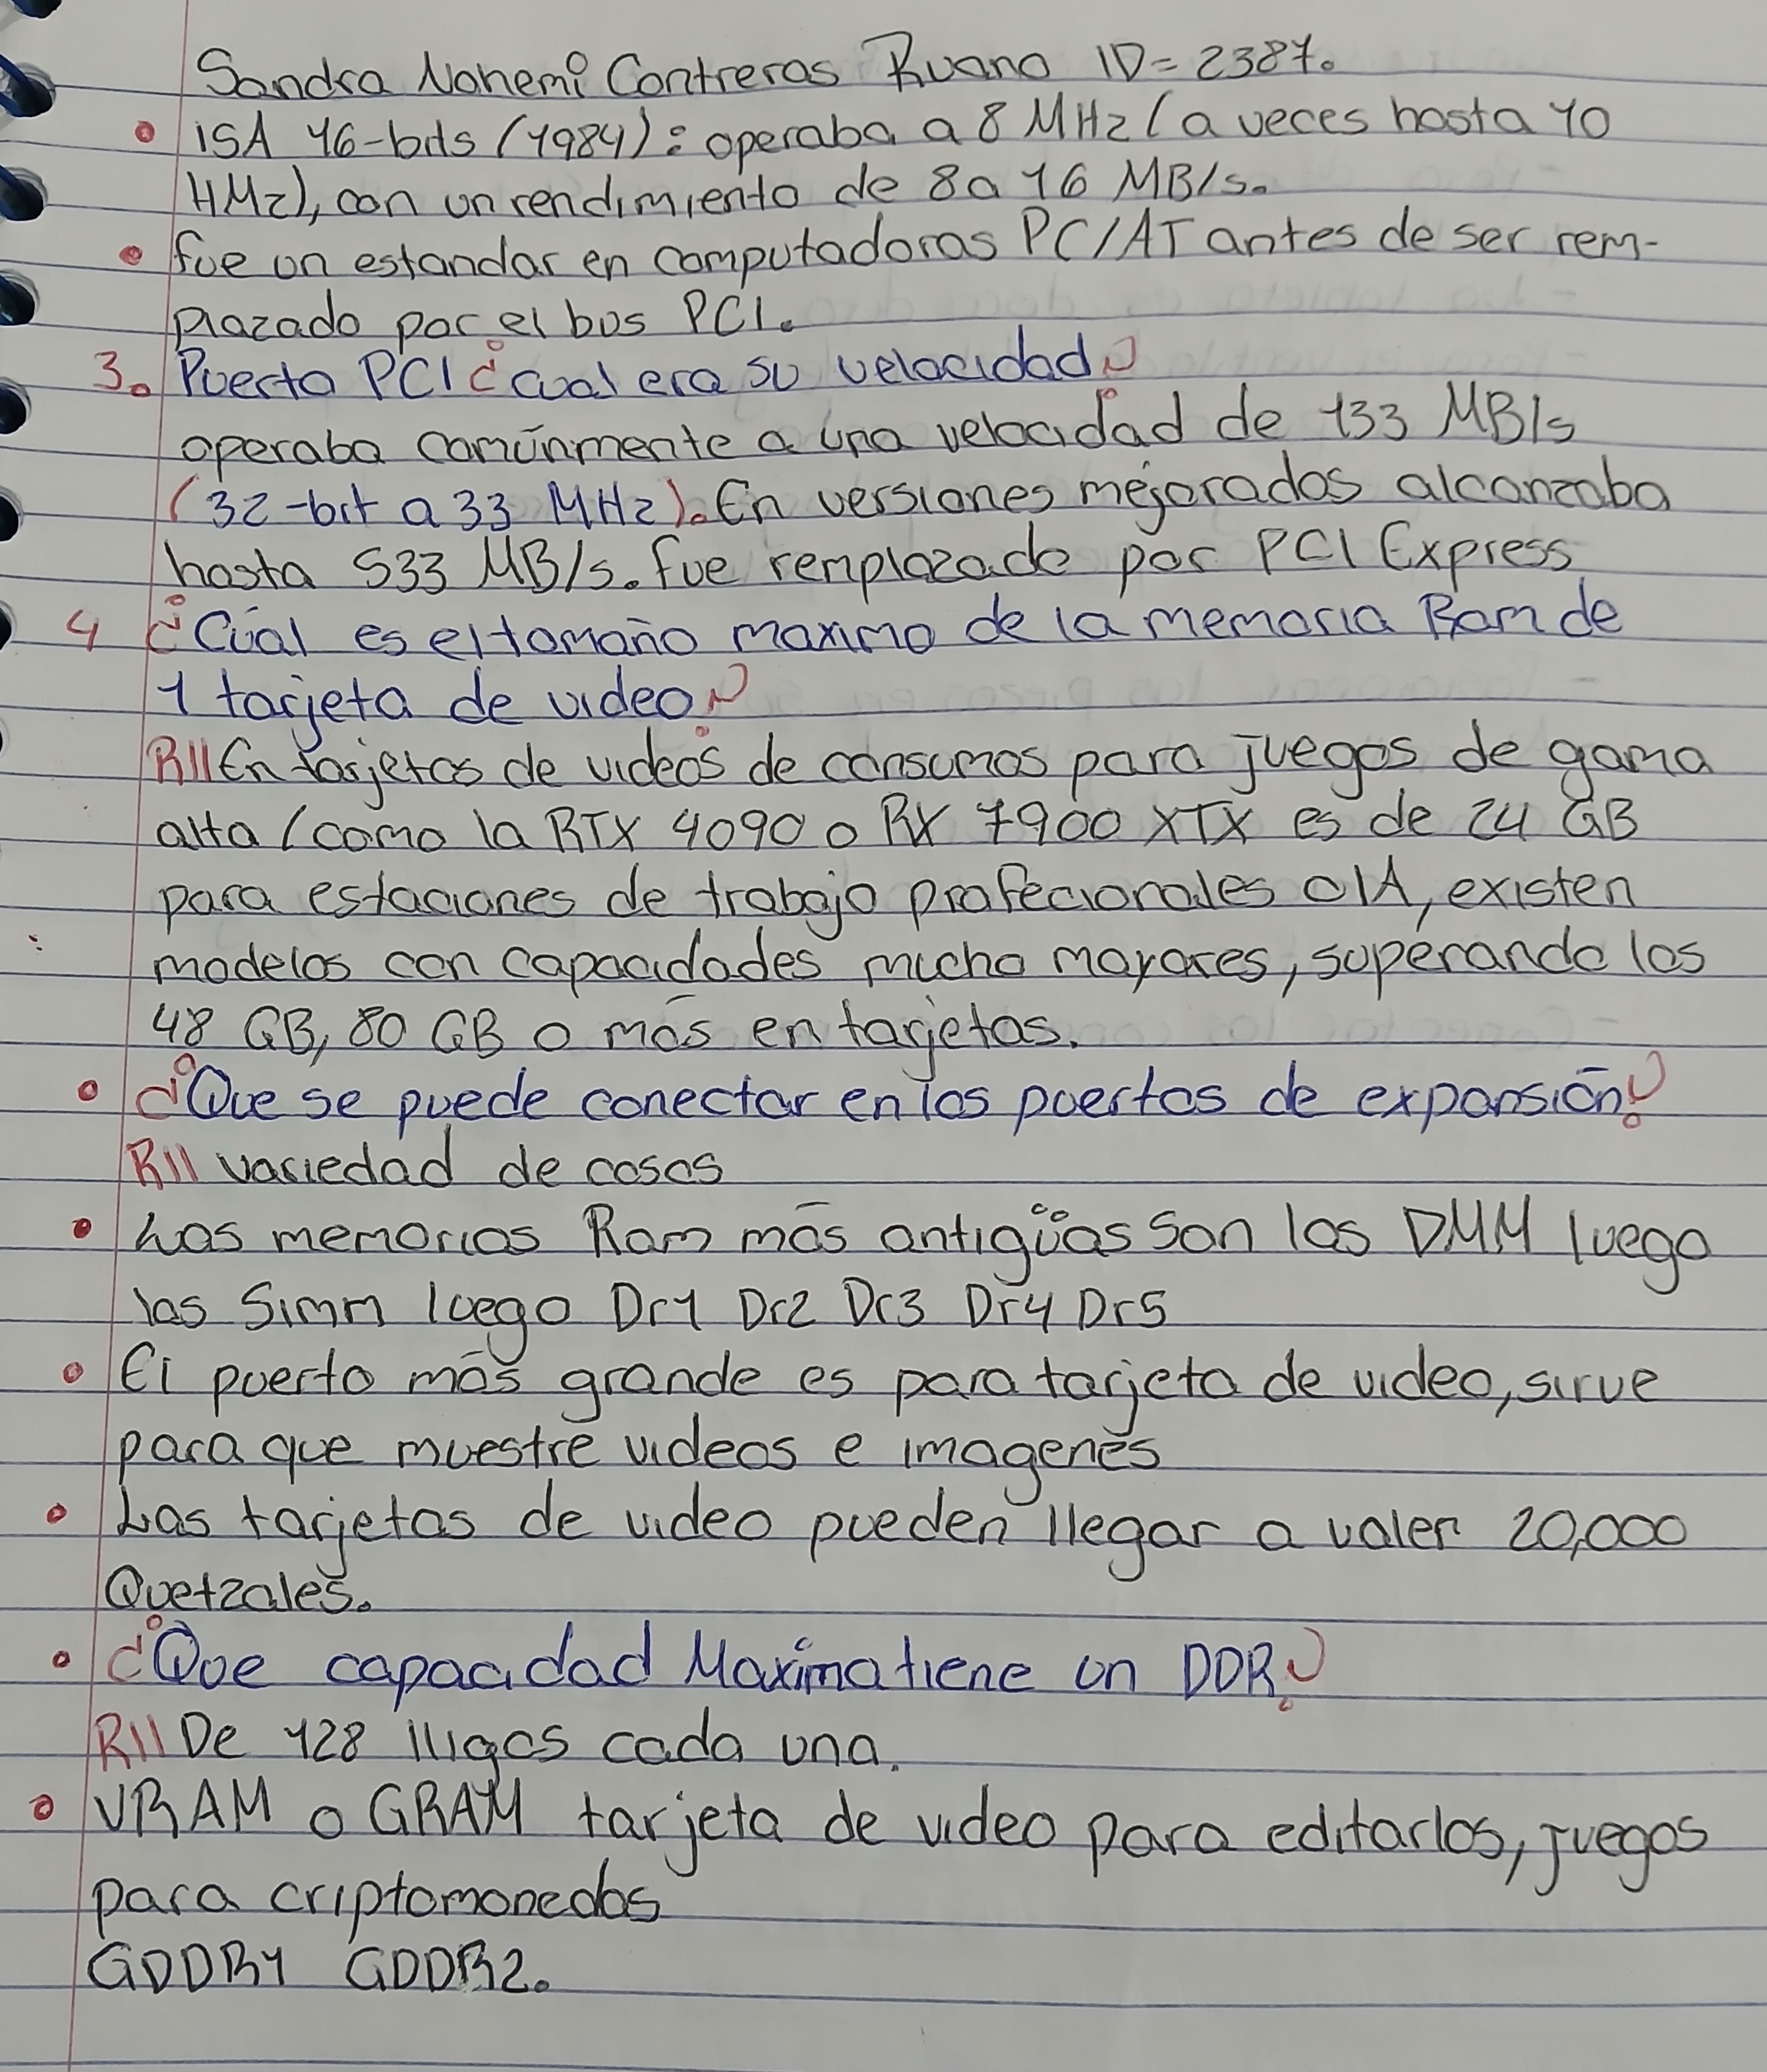 Sandra Nohemi Contreras Ruano ID=2387.
• ISA 16-bits (1984): operaba a 8 MHz (a veces hasta 10
HMz), con un rendimiento de 8 a 16 MB/s.
• fue un estandar en computadoras PC/AT antes de ser rem-
plazado por el bus PCI.
3. Puerto PCI ¿cual era su velocidad?
operaba comúnmente a una velocidad de 133 MB/s
(32-bit a 33 MHz). En versiones mejorados alcanzaba
hasta 533 MB/s. fue remplazado por PCI Express
4 ¿Cúal es el tamaño maximo de la memoria Ram de
1 tarjeta de video?
R// En tarjetas de videos de consumos para juegos de gama
alta (como la RTX 4090 o RX 7900 XTX es de 24 GB
para estaciones de trabajo profecionales o IA, existen
modelos con capacidades mucho mayores, superando los
48 GB, 80 GB o más en tarjetas.
• ¿Que se puede conectar en los puertos de expansión?
R// variedad de cosas
• Las memorias Ram más antigüas son las DMM luego
las Simm luego Dr1 Dr2 Dr3 Dr4 Dr5
• El puerto más grande es para tarjeta de video, sirve
para que muestre videos e imagenés
• Las tarjetas de video pueden llegar a valer 20,000
Quetzales.
• ¿Que capacidad Maxima tiene un DDR?
R// De 128 cada una.
• VRAM o GRAM tarjeta de video para editarlos, juegos
para criptomonedas
GDDR1 GDDR2.